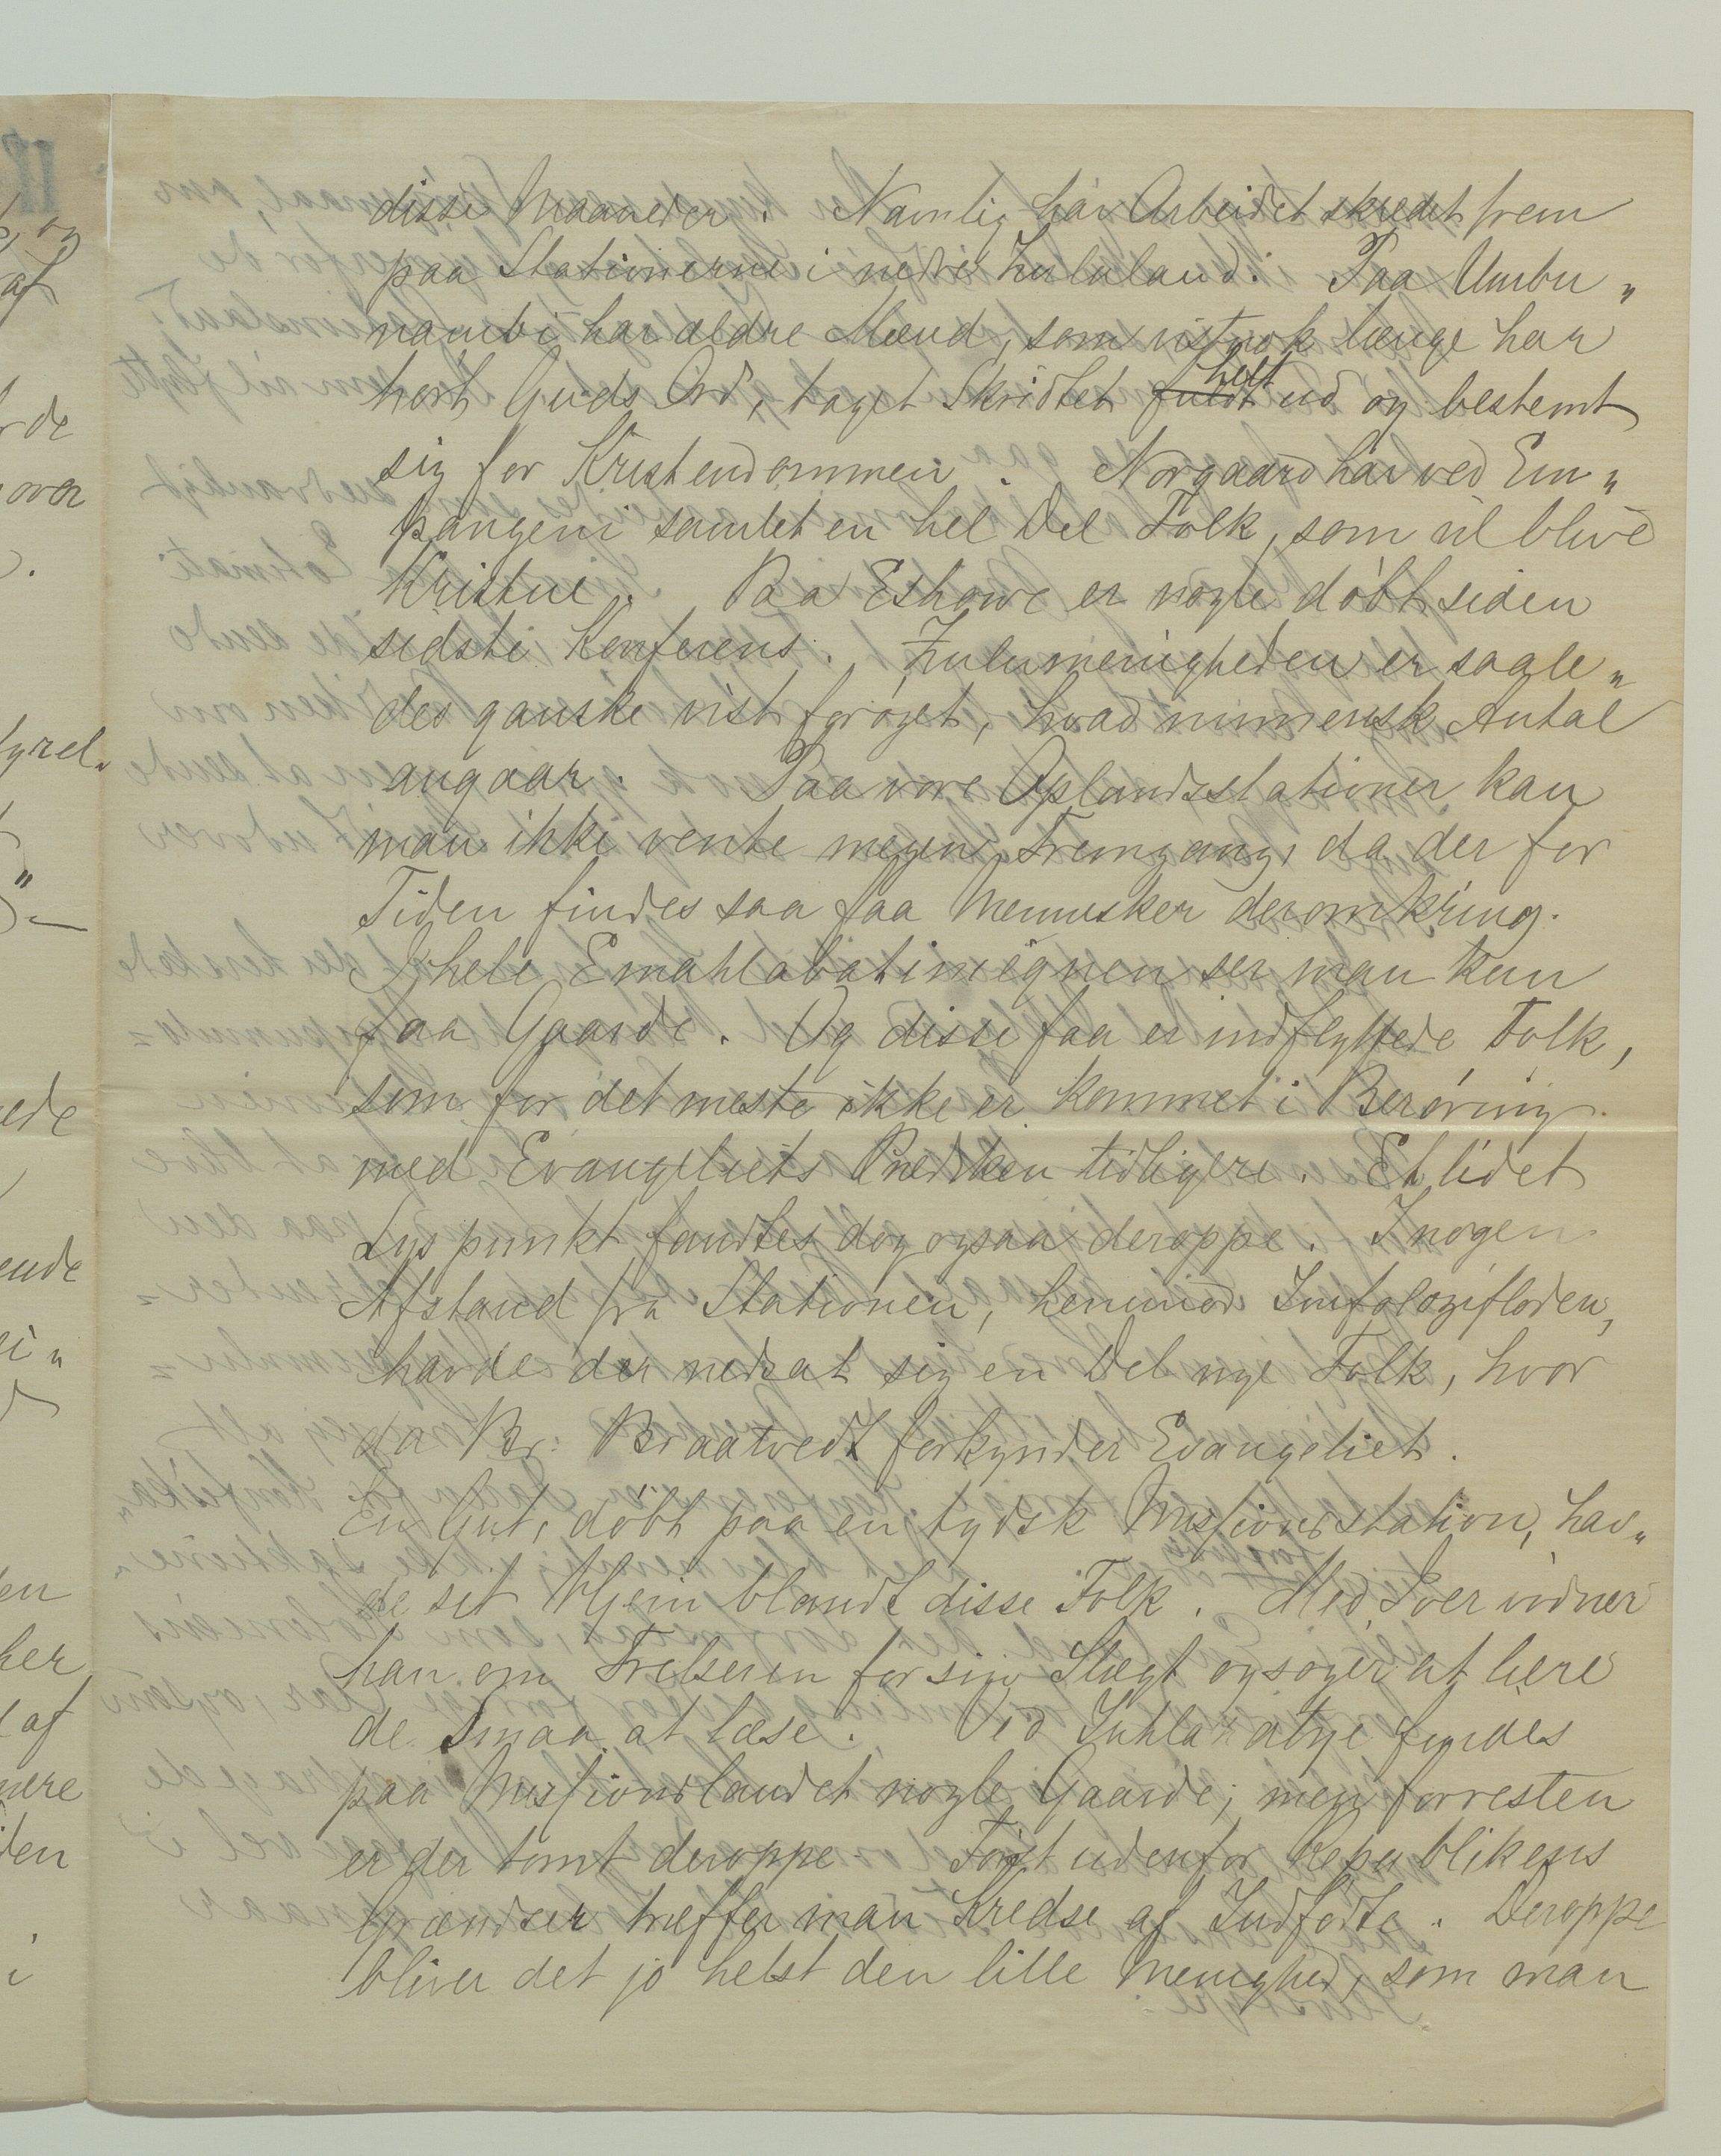 disse Maaneder. Navnlig har Arbeidet skredet frem
paa Stationerne i nedre Zululand. Paa Umbu„
nambi har ældre Mænd, som vistnok længe har
hørt Guds Ord, taget Skridtet fuldt helt ud og bestemt
sig for Kristendommen. Norgaard har ved Em„
pangeni samlet en hel Del Folk, som vil blive
Kristne. Paa Eshowe er nogle døbt siden
sidste Konferens. Zulumenigheden er saale„
des ganske vist forøget, hvad numerisk Antal
angaar. Paa vore Oplandsstationer kan
man ikke vente megen Fremgang, da der for
Tiden findes saa faa Mennesker deromkring.
I hele Emahlabatiniegnen ser man kun
faa Gaarde. Og disse faa er indflyttede Folk,
som for det meste ikke er kommet i Berøring
med Evangeliets Prædiken tidligere. Et lidet
Lyspunkt fandtes dog ogsaa deroppe. I nogen
Afstand fra Stationen, henimod Imfolozifloden,
havde der nedsat sig en Del nye Folk, hvor
da Br. Braatvedt forkynder Evangeliet.
En Gut, døbt paa en tydsk Missionsstation, hav„
de sit Hjem blandt disse Folk. Med Iver vidner
han om Frelseren for sin Slægt og søger at lære
de Smaa at læse. Ved Inhlazatsje findes
paa Missionslandet nogle Gaarde; men forresten
er der tomt deroppe. Først udenfor Republikens
Grændser træffer man Kredse af Indfødte. Deroppe
bliver det jo helst den lille Menighed, som man